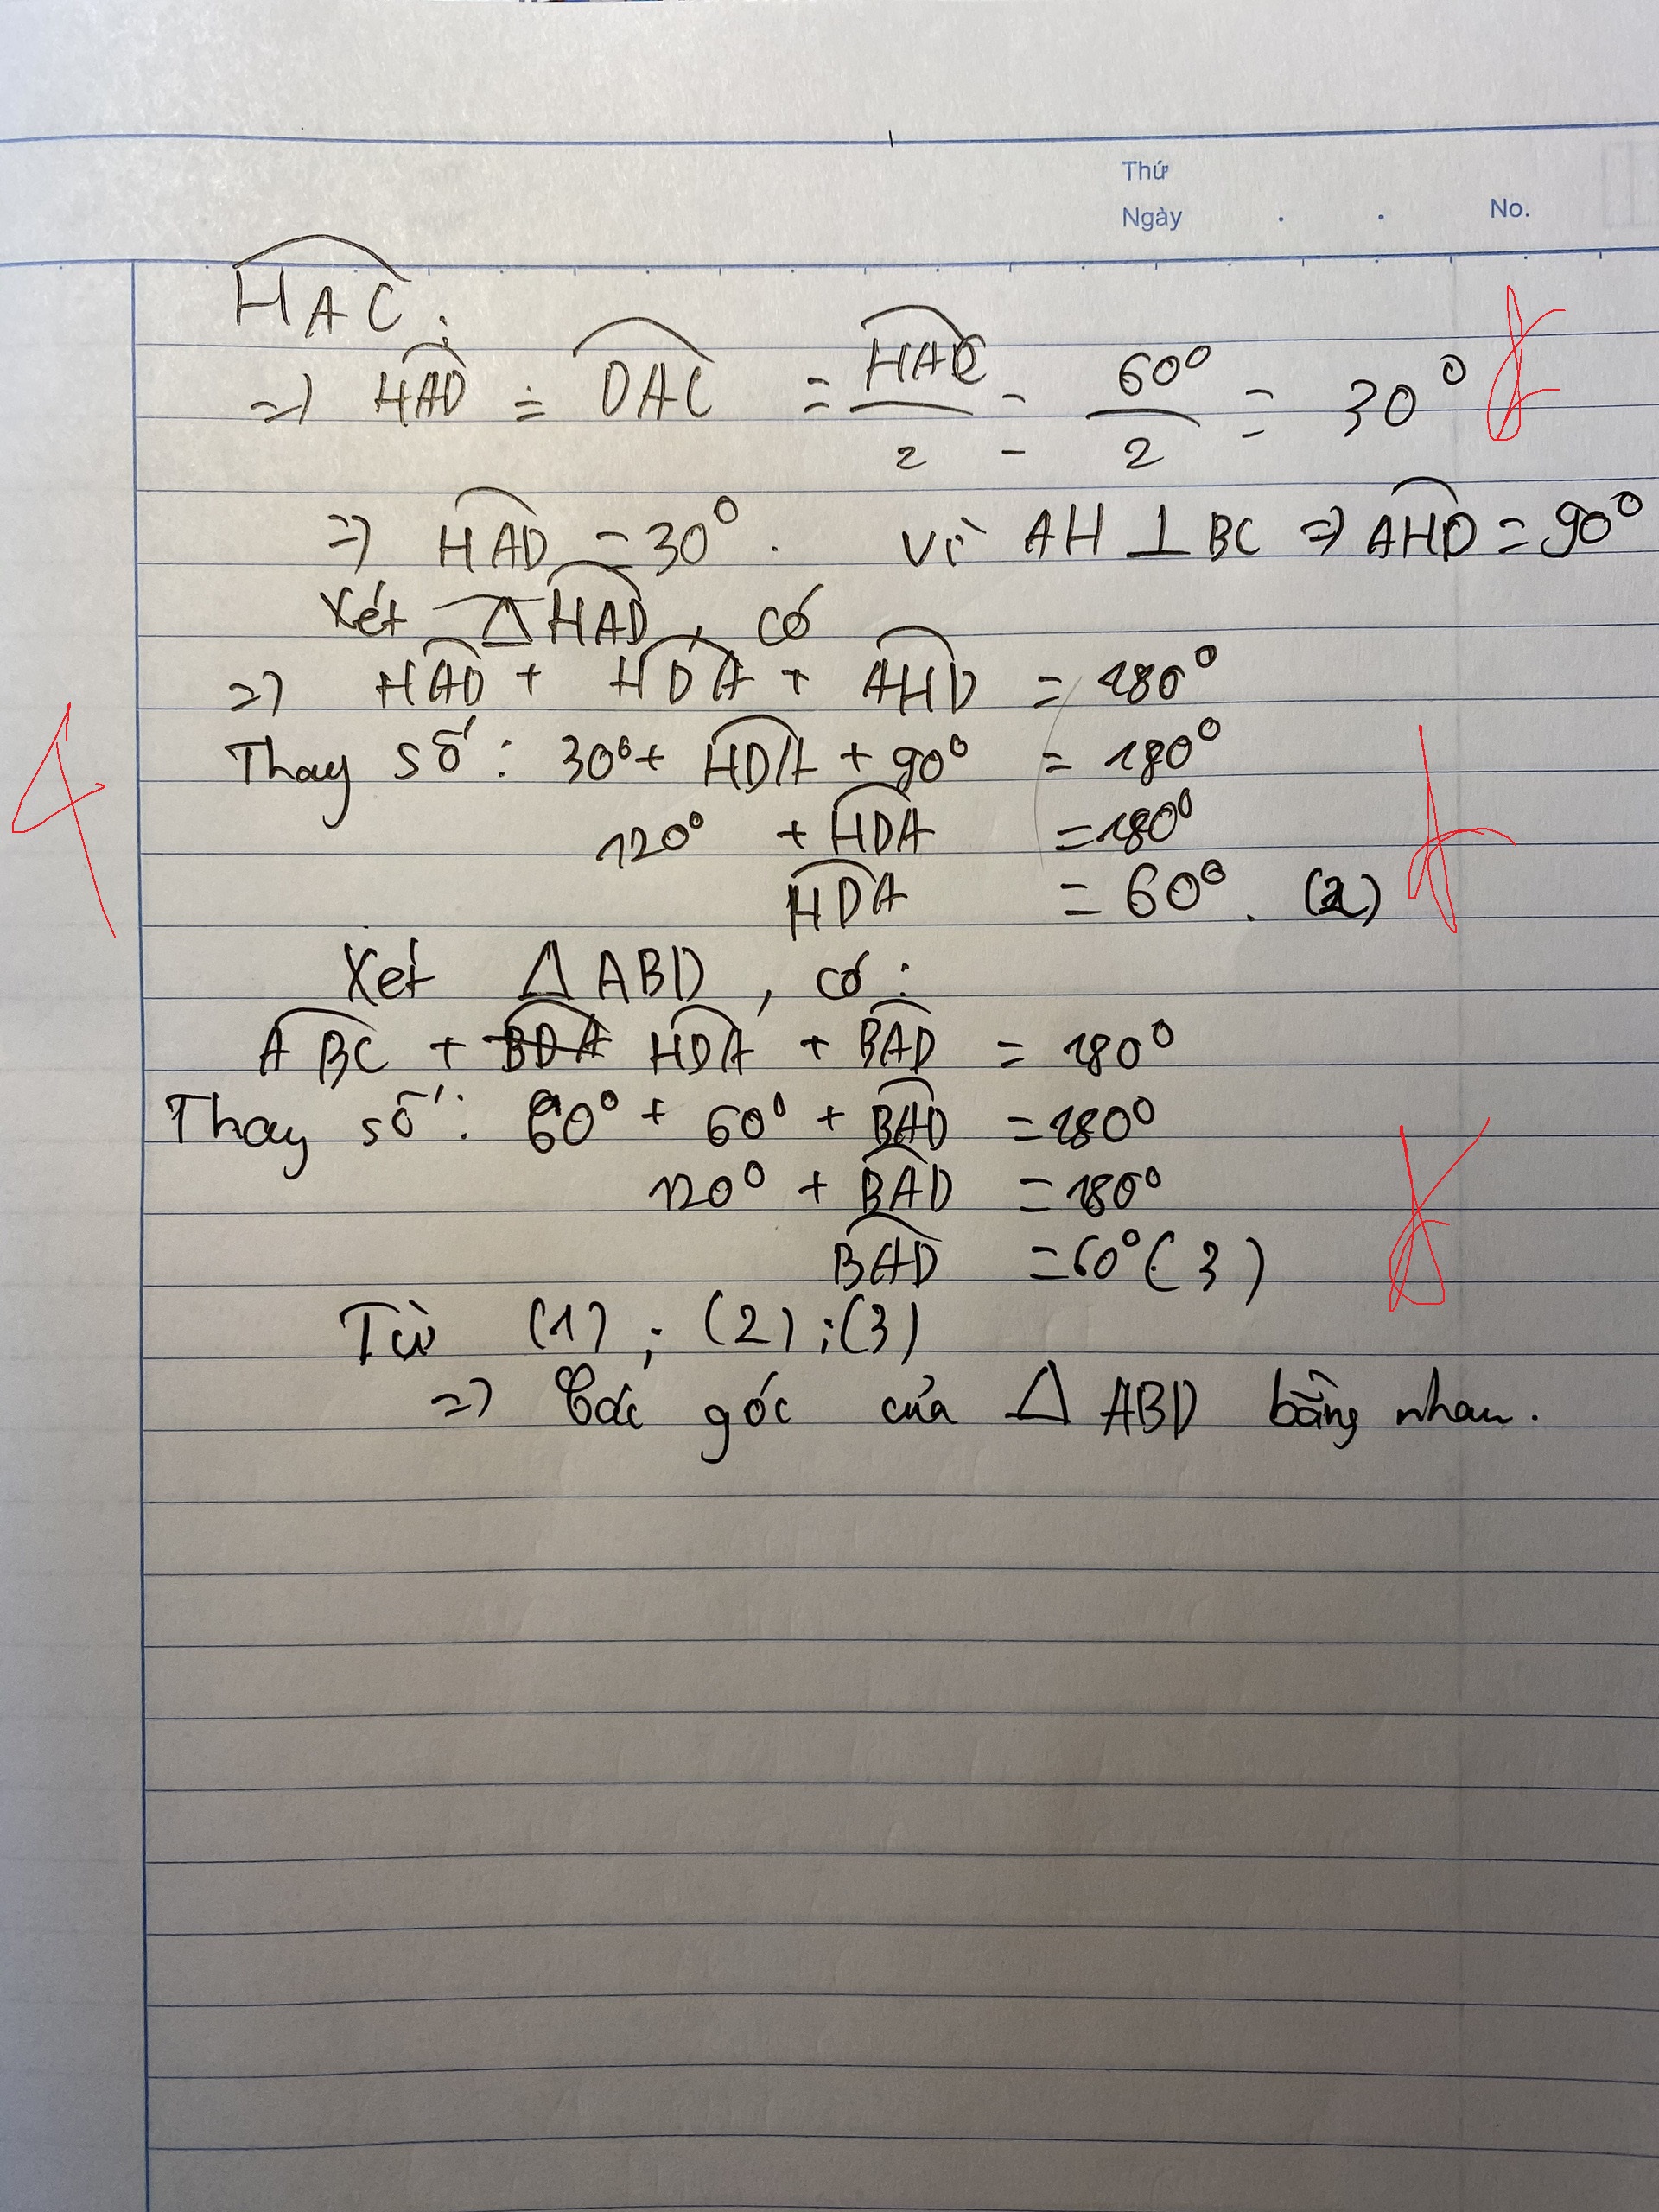 Thứ
Ngày . . No.
HAC.
=> HAD = DAC = HAC/2 = 60°/2 = 30°
=> HAD = 30°. Vì AH ⊥ BC => AHD = 90°
Xét △HAD, có
=> HAD + HDA + AHD = 180°
Thay số: 30° + HDA + 90° = 180°
120° + HDA = 180°
HDA = 60°. (2)
Xét △ABD, có:
ABC + BDA HDA + BAD = 180°
Thay số: 60° + 60° + BAD = 180°
120° + BAD = 180°
BAD = 60° (3)
Từ (1); (2); (3)
=> Các góc của △ABD bằng nhau.